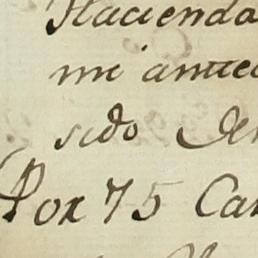 Hacienda
mi antec
sido de
Por 75 Ca